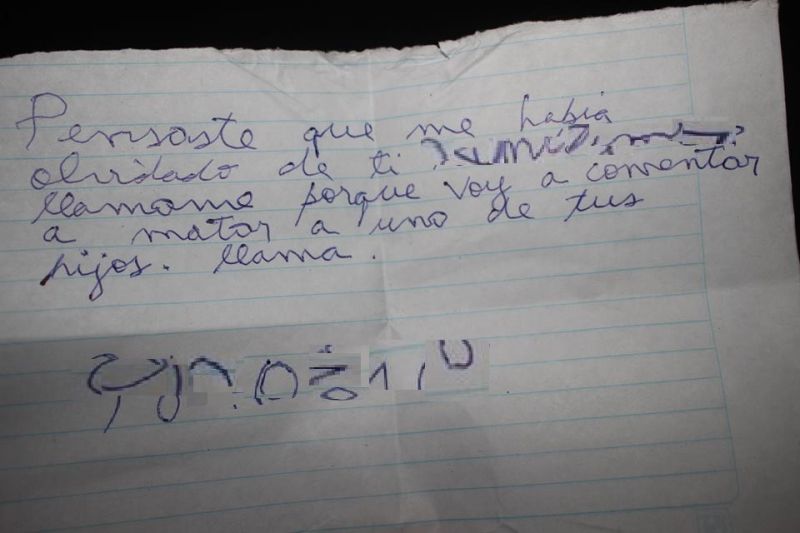 Pensaste que me había
olvidado de ti
llamame porque voy a comentar
a matar a uno de tus
hijos. llama.